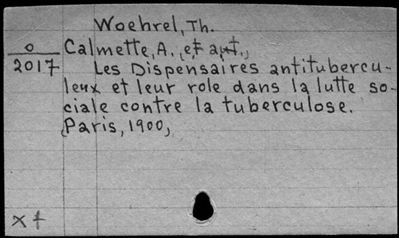 Woehrel, Th.
o Calmette, A. et aut.,
2017 Les Dispensaires antitubercu-
leux et leur role dans la lutte so-
ciale contre la tuberculose.
Paris, 1900,
x f